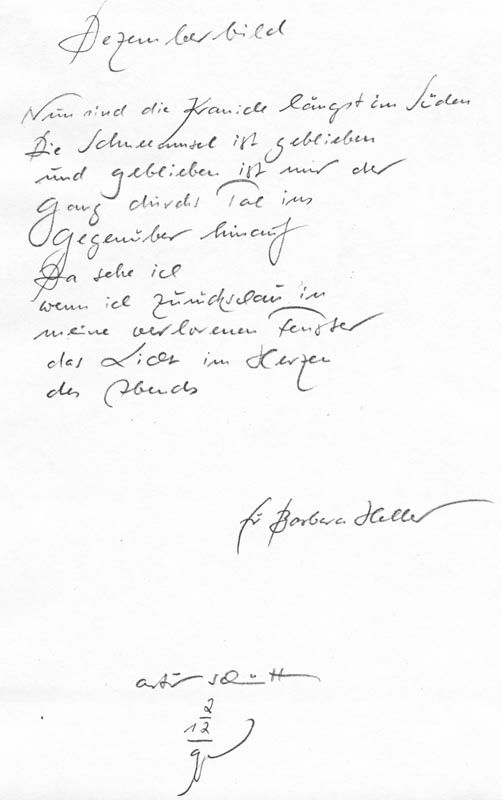 Dezemberbild
Nun sind die Kraniche längst im Süden
Die Schneeamsel ist geblieben
und geblieben ist mir der
Gang durchs Tal ins
Gegenüber hinauf
Da sehe ich
wenn ich zurückschau in
meine verlorenen Fenster
das Licht im Herzen
des Abends
für Barbara Heller
artur schütt